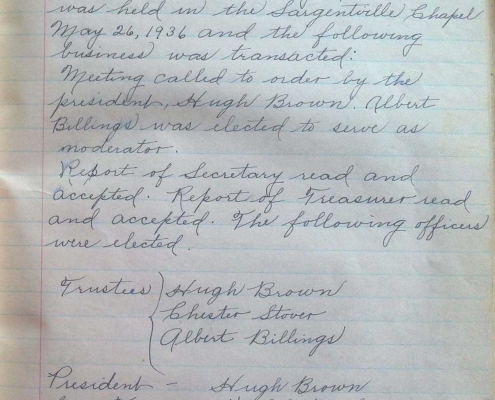 was held in the Sargentville Chapel
May 26, 1936 and the following
business was transacted:
Meeting called to order by the
president, Hugh Brown. Albert
Billings was elected to serve as
moderator.
Report of Secretary read and
accepted. Report of Treasurer read
and accepted. The following officers
were elected.
Trustees } Hugh Brown
Chester Stover
Albert Billings
President - Hugh Brown